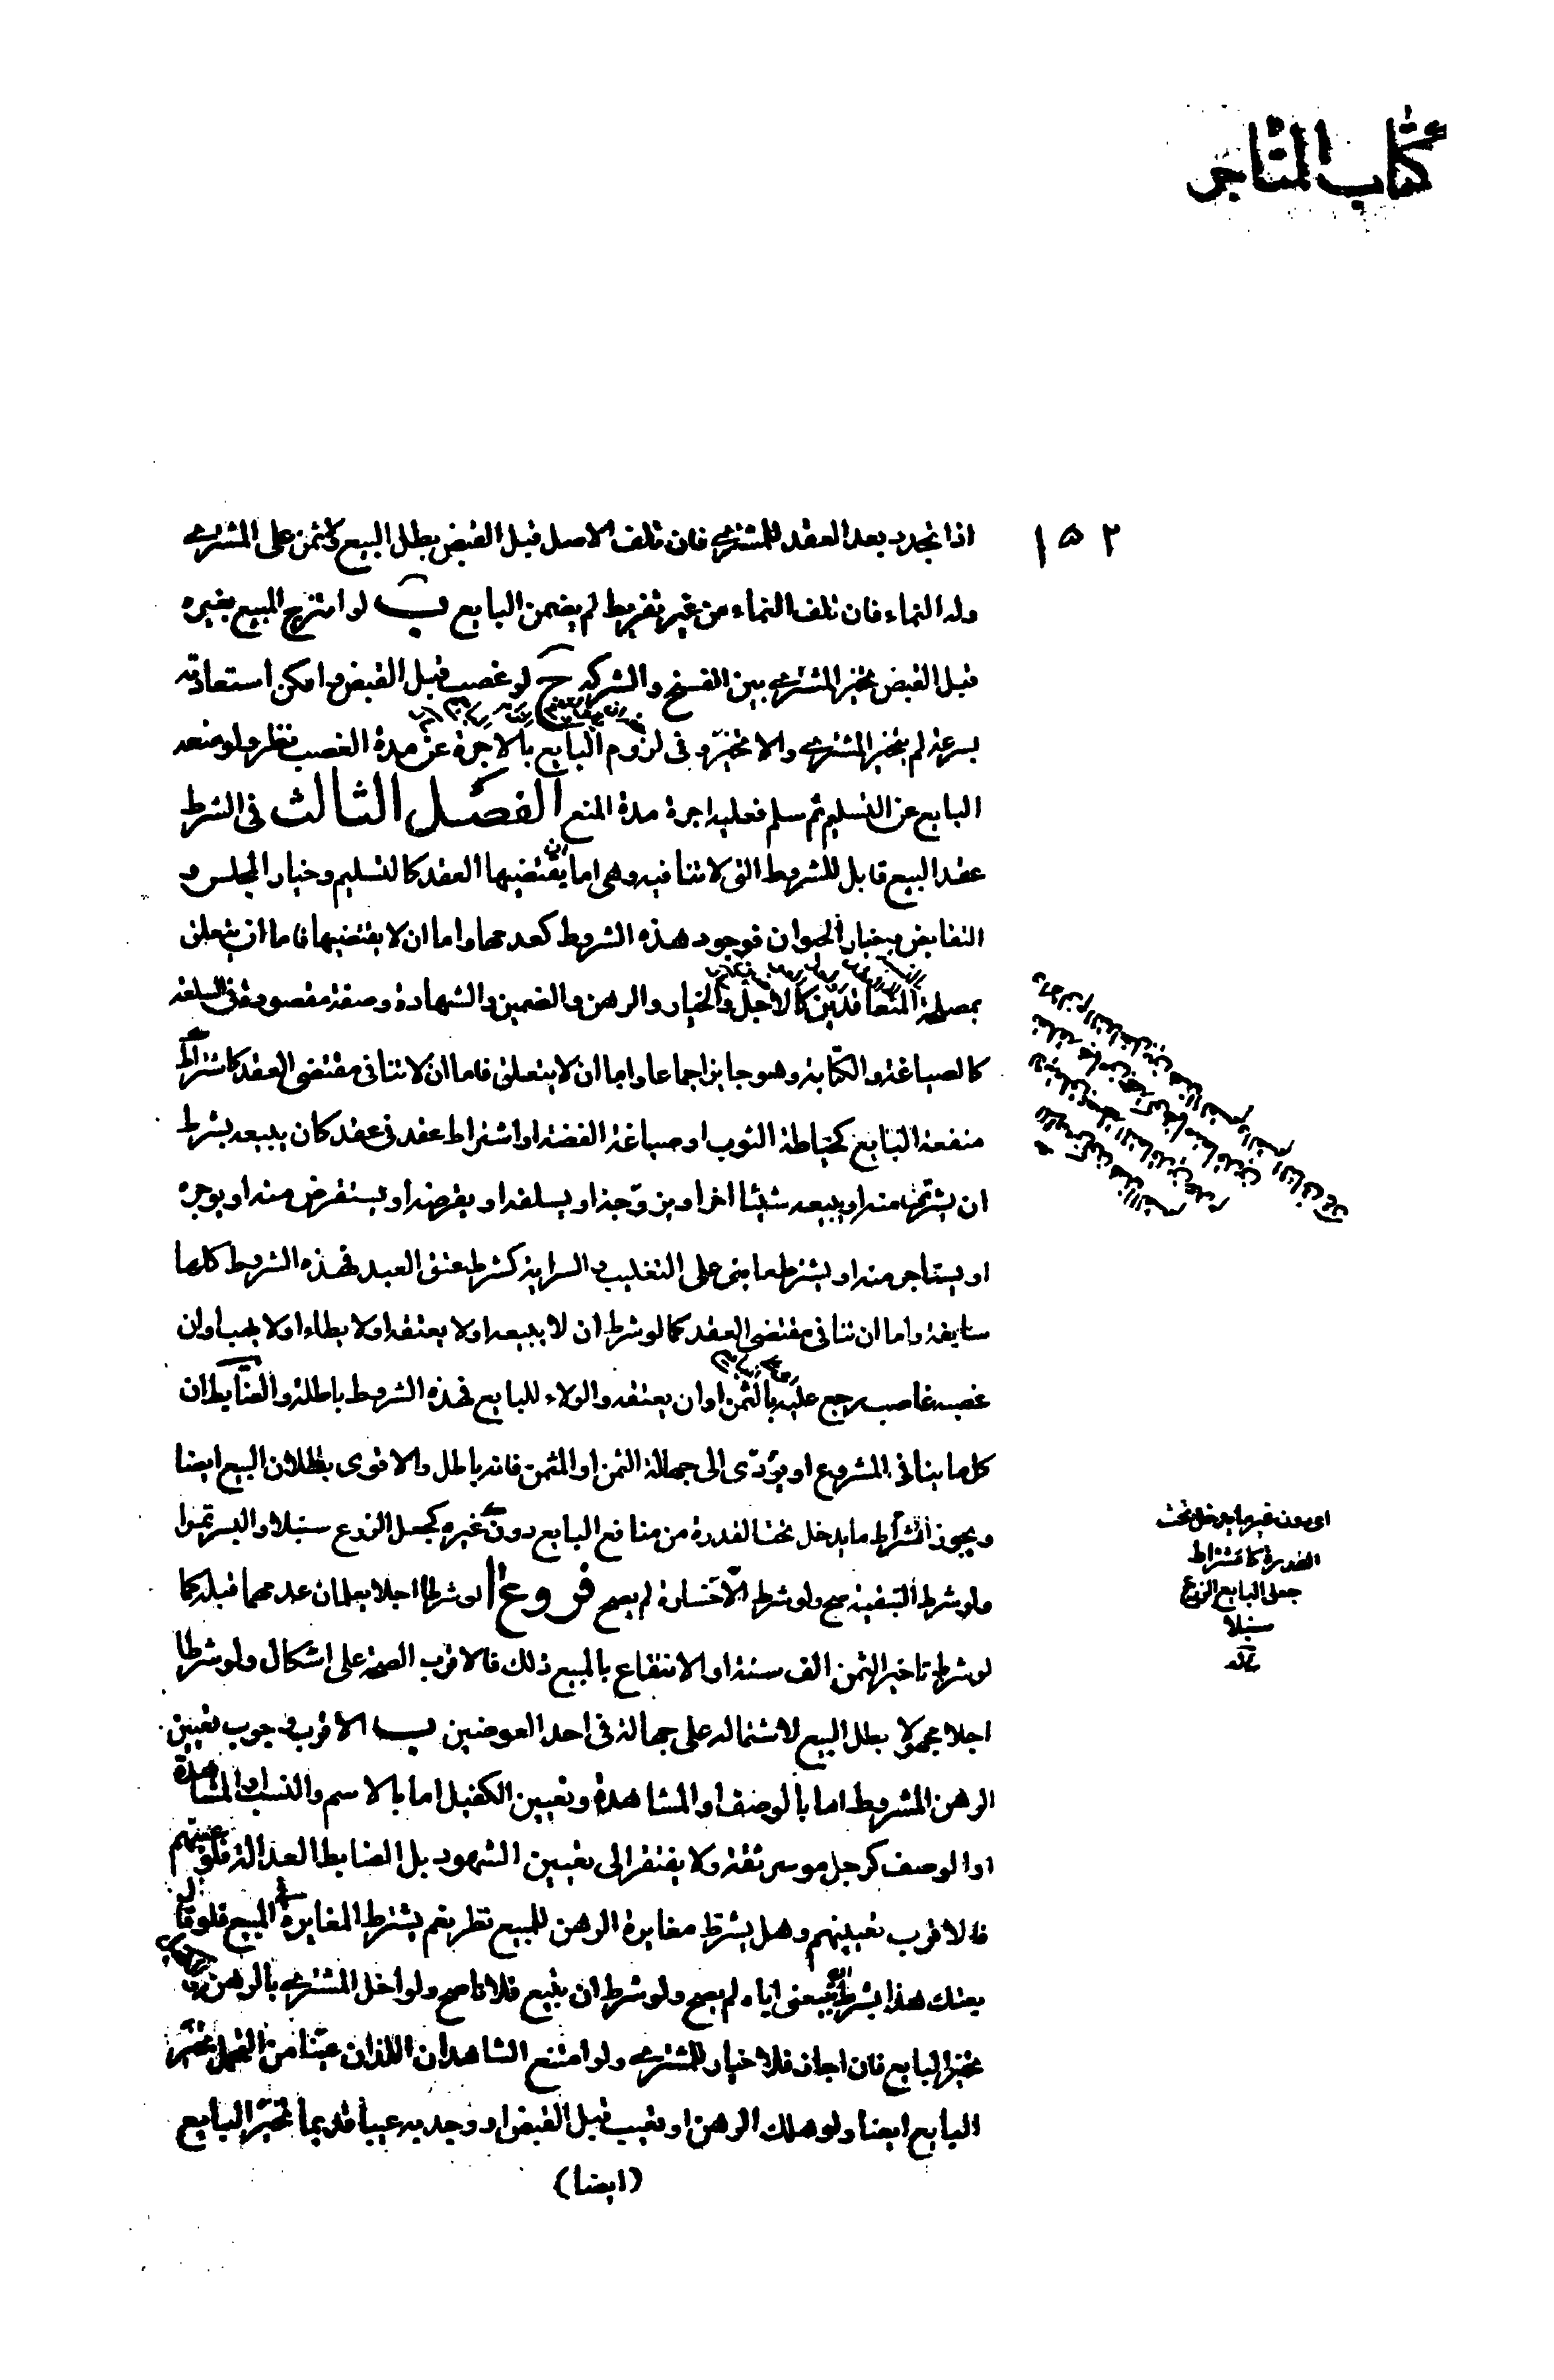 كتاب المتاجر
١٥٢
اذا تجدد بعد العقد للمشتری فان تلف الاصل قبل القبض بطل البیع و لا ثمن علی المشتری
وله النماء فان تلف النماء من غیر تفریط لم یضمن البایع ب لو امتزج المبیع بغیره
قبل القبض تخیر المشتری بین الفسخ والشرکة ج لو غصب قبل القبض وامکن استعادته
بسرعة لم یتخیر المشتری والا تخیر و فی لزوم البایع بالاجرة عن مدة الغصب نظر ولو منعه
البایع عن التسلیم ثم سلم فعلیه اجرة مدة المنع الفصل الثالث فی الشرط
عقد البیع قابل للشروط التی لا تنافیه وهی اما ان یقتضیها العقد کالتسلیم وخیار المجلس و
التقابض وخیار الحیوان فوجود هذه الشروط کعدمها واما ان لا یقتضیها فاما ان یتعلق
بمصلحة المتعاقدین کالاجل والخیار والرهن والضمین والشهادة وصفة مقصودة فی السلعة
کالصیاغة والکتابة وهو جایز اجماعا واما ان لا یتعلق فاما ان لا تنافی مقتضی العقد کاشتراط
منفعة البایع کخیاطة الثوب او صیاغة الفضة او اشتراط عقد فی عقد کان یبیعه بشرط
ان یشتری منه او یبیعه شیئا اخر او یزوجه او یسلفه او یقرضه او یستقرض منه او یوجره
او یستاجر منه او یشترط ما بنی علی التغلیب والسرایة کشرط عتق العبد فهذه الشروط کلها
سایغة واما ان تنافی مقتضی العقد کما لو شرط ان لا یبیعه او لا یعتقه او لا یطاء او لا یهب او ان
غصبه غاصب رجع علیه بالثمن او ان یعتقه والولاء للبایع فهذه الشروط باطلة والضابط ان
کل ما ینافی المشروع او یؤدّی الی جهالة الثمن او المثمن فانه باطل والاقوی بطلان البیع ایضا
ویجوز اشتراط ما یدخل تحت القدرة من منافع البایع دون غیره کجعل الزرع سنبلا والبسر تمرا
ولو شرط التبقیة صح ولو شرط لم یصح فروع ا لو شرطا اجلا یعلمان عدمهما قبله کما
لو شرط تاخیر الثمن الف سنة او الانتفاع بالمبیع ذلک فالاقرب الصحة علی اشکال ولو شرطا
اجلا مجهولا بطل البیع لاشتماله علی جهالة فی احد العوضین ب الاقرب وجوب تعیین
الرهن المشروط اما بالوصف او المشاهدة وتعیین الکفیل اما بالاسم والنسب او المشاهدة
او الوصف کرجل موسر ثقة ولا یفتقر الی تعیین الشهود بل الضابط العدالة فلو عینهم
فالاقرب تعیینهم وهل یشترط مغایرة الرهن للمبیع نظر نعم یشترط المغایرة فی المبیع فلو قال
بعتک هذا بشرط ان تبیعنی ایاه لم یصح ولو شرط ان یبیع فلانا صح ولو اخل المشتری بالرهن
تخیر البایع فان اجاز فلا خیار للمشتری ولو امتنع الشاهدان اللذان عینا من التحمل تخیّر
البایع ایضا ولو هلک الرهن او تعیب قبل القبض او وجد به عیبا قدیما تخیّر البایع
(ایضا)
ای دون غیر ما یدخل تحت
القدرة کاشتراط
جعل البایع الزرع
سنبلا